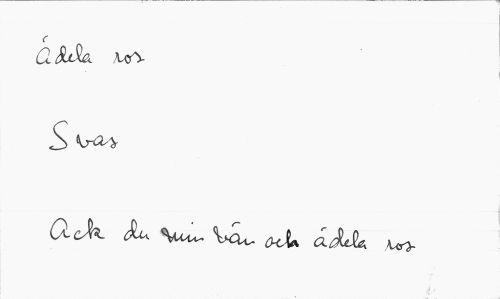 Ädela ros
Svas
Ack du min vän och ädela ros